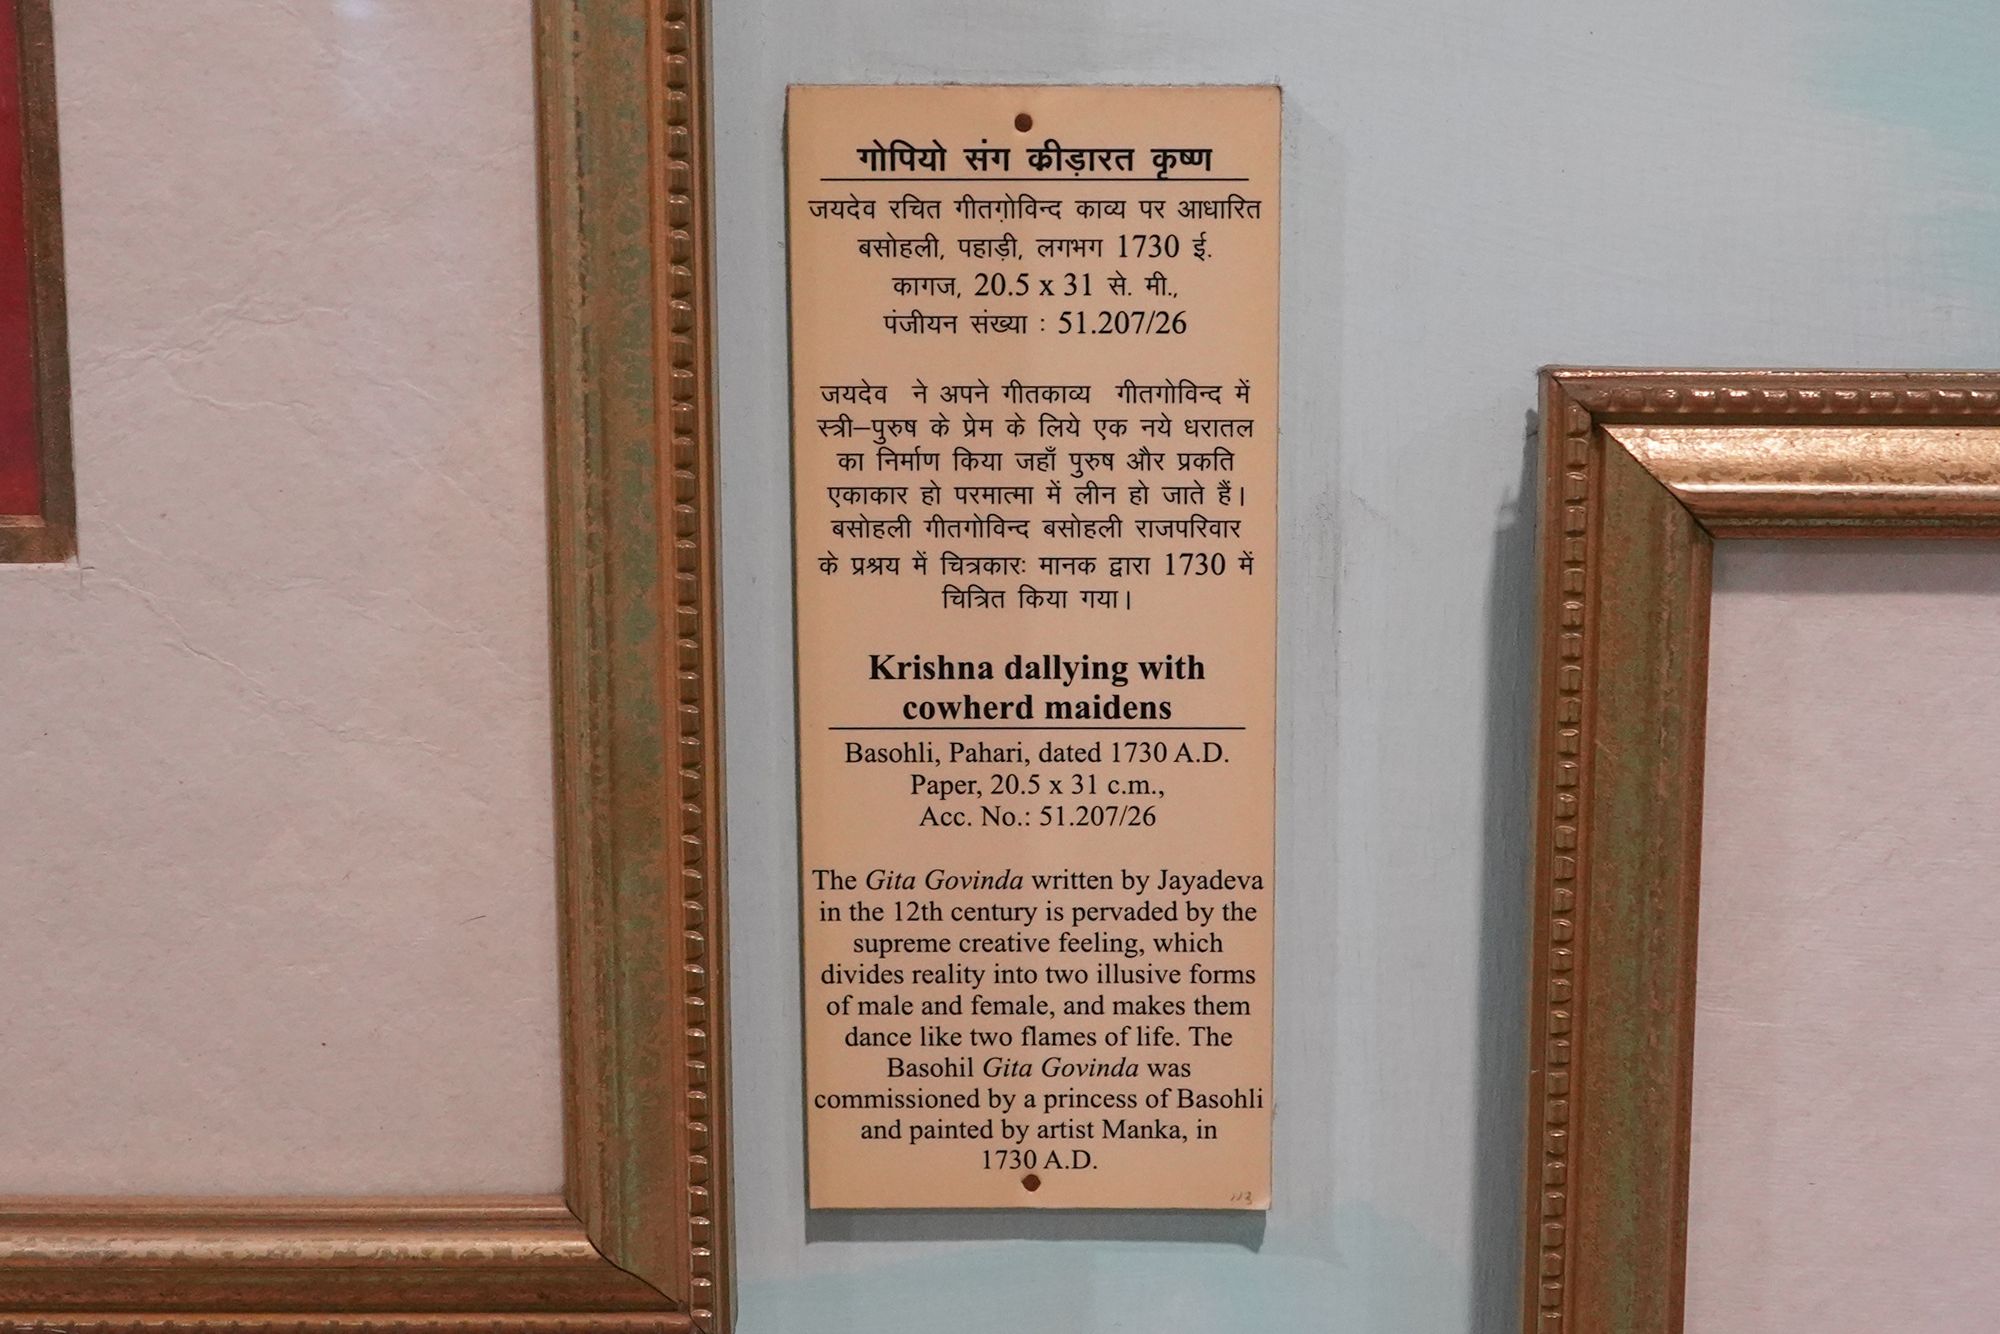 गोपियो संग क्रीड़ारत कृष्ण
जयदेव रचित गीतगो़विन्द काव्य पर आधारित
बसोहली, पहाड़ी, लगभग 1730 ई.
कागज, 20.5 x 31 से. मी.,
पंजीयन संख्या : 51.207/26
जयदेव ने अपने गीतकाव्य गीतगोविन्द में
स्त्री–पुरुष के प्रेम के लिये एक नये धरातल
का निर्माण किया जहाँ पुरुष और प्रकति
एकाकार हो परमात्मा में लीन हो जाते हैं।
बसोहली गीतगोविन्द बसोहली राजपरिवार
के प्रश्रय में चित्रकारः मानक द्वारा 1730 में
चित्रित किया गया।
Krishna dallying with
cowherd maidens
Basohli, Pahari, dated 1730 A.D.
Paper, 20.5 x 31 c.m.,
Acc. No.: 51.207/26
The Gita Govinda written by Jayadeva
in the 12th century is pervaded by the
supreme creative feeling, which
divides reality into two illusive forms
of male and female, and makes them
dance like two flames of life. The
Basohil Gita Govinda was
commissioned by a princess of Basohli
and painted by artist Manka, in
1730 A.D.
113